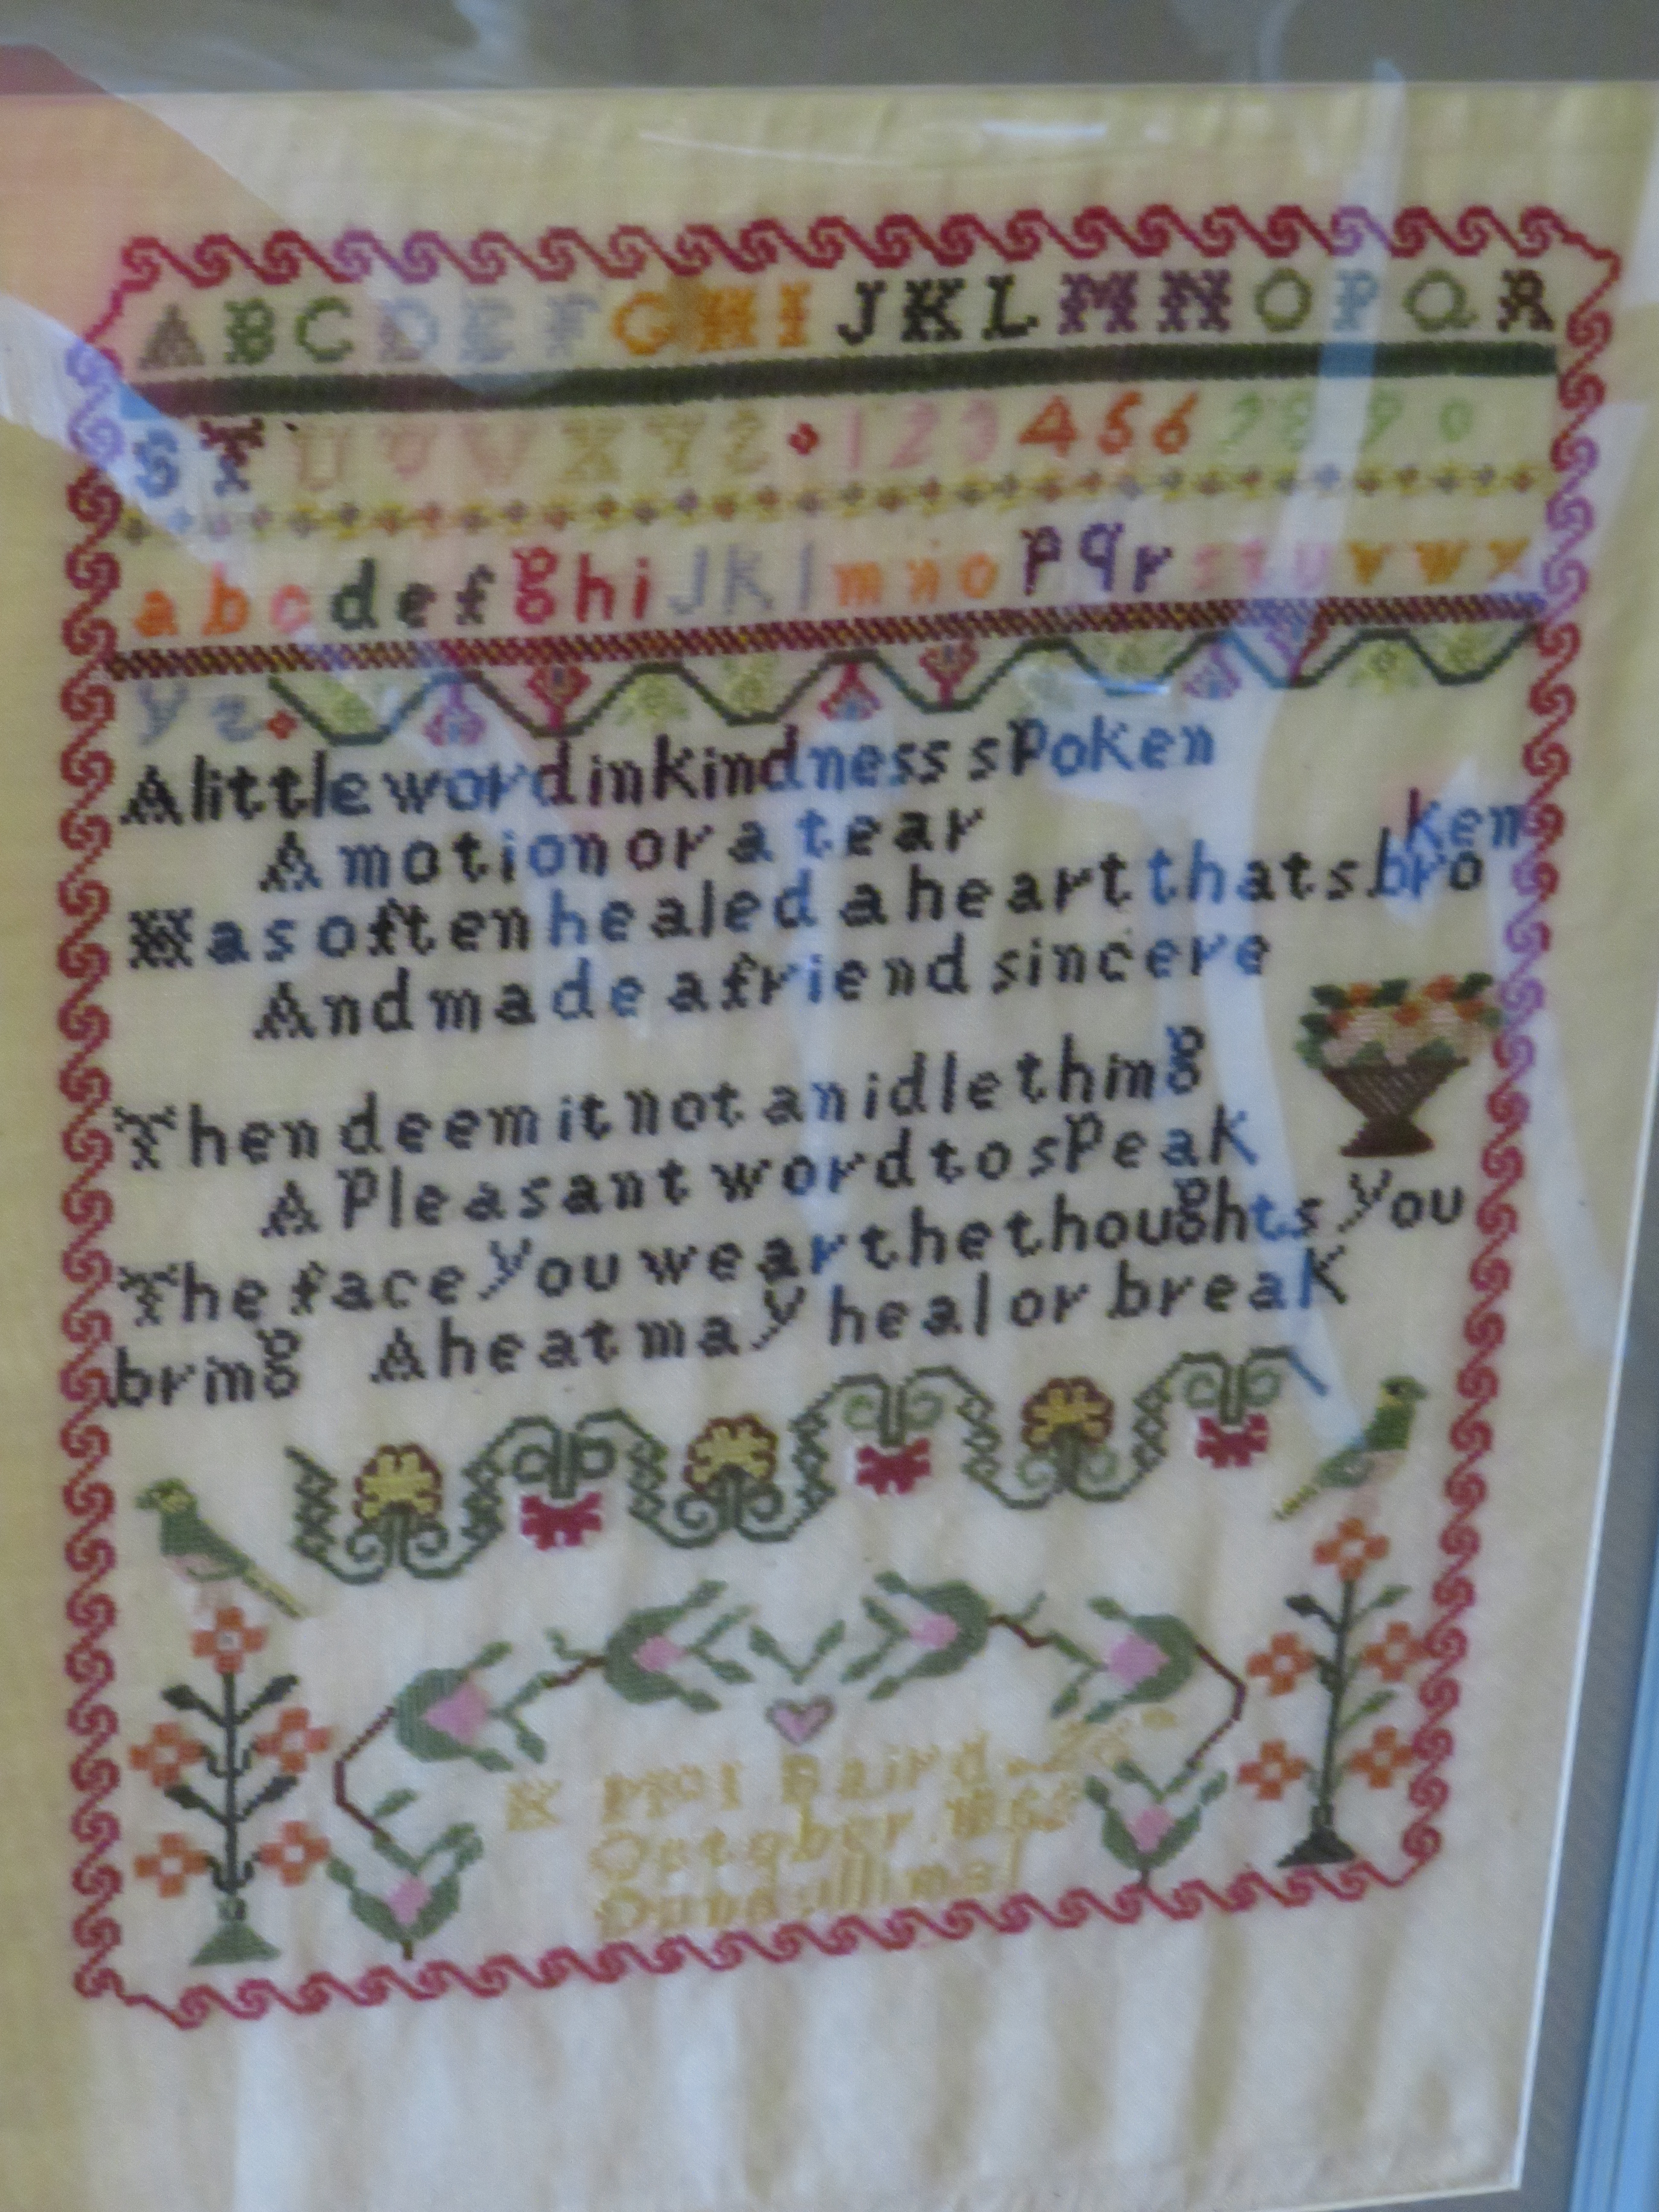 A B C D E F G H I J K L M N O P Q R
S T U V W X Y Z 1 2 3 4 5 6 7 8 9 0
a b c d e f g h i J K l m n o p q r s t u v w x
y z
A little word in kindness spoken
A motion or a tear
Has often healed a heart thats bro
ken
And made a friend sincere
Then deem it not an idle thing
A Pleasant word to sPeak
The face you wear the thoughts you
bring A heat may heal or break
Baird
October